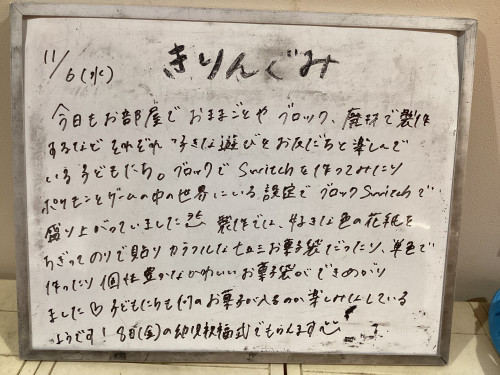 11/6(水) きりんぐみ
今日もお部屋でおままごとや ブロック、廃材で製作
するなど それぞれ 好きな遊びをお友だちと楽しんで
いる子どもたち。ブロックで Switchを作ってみたり
ポケモンとゲームの中の世界にいる設定で ブロックSwitchで
盛り上がっていました 製作では、好きな色の花紙を
ちぎって のりで貼り カラフルな七五三お菓子袋だったり、単色で
作ったり 個性豊かなかわいい お菓子袋が できあがり
ました♡ 子どもたちも何のお菓子が入るのか楽しみにしている
ようです! 8日(金)の幼児祝福式でもらえます